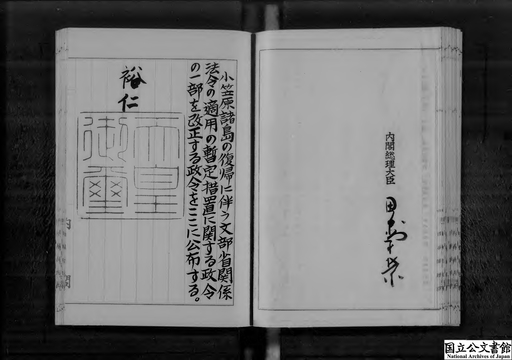 内閣総理大臣
田中角榮
小笠原諸島の復帰に伴う文部省関係
法令の適用の暫定措置に関する政令
の一部を改正する政令をここに公布する。
裕仁
天皇
御璽
内閣
国立公文書館
National Archives of Japan